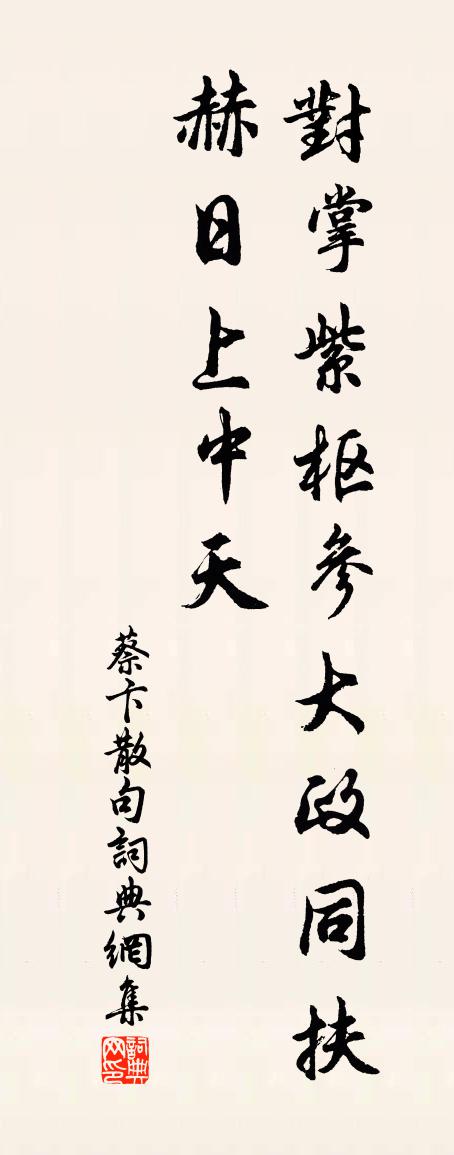 對掌紫枢參大政同扶
赫日上中天
蔡卞散句詞典網集
詞典
网印